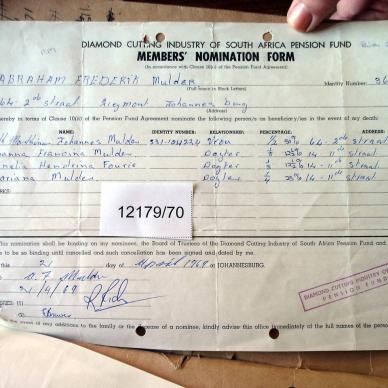 DIAMOND CUTTING INDUSTRY OF SOUTH AFRICA PENSION FUND
MEMBERS' NOMINATION FORM
(In accordance with Clause 10(c) of the Pension Fund Agreement)
ABRAHAM FREDERIK Mulder Identity Number: 36
(Full Name in Block Letters)
64 2de straat Johannesburg
hereby in terms of Clause 10(c) of the Pension Fund Agreement nominate the following person/s as beneficiary/ies in the event of my death:
NAME: IDENTITY NUMBER: RELATIONSHIP: PERCENTAGE: ADDRESS:
Johannes Mulder 331-104224 Vrou 1/2 50% 64-2de straat
Francina Mulder Dogter 1/8 12½% 14-11de straat
Hendrina Fourie Dogter 1/8 12½% 14-11de straat
Mulder Dogter 1/4 25% 14-11de straat
12179/70
This nomination shall be binding on my nominees, the Board of Trustees of the Diamond Cutting Industry of South Africa Pension Fund and
to be so binding until cancelled and such cancellation has been signed and dated by me.
this 2 day of April 1969 at JOHANNESBURG.
A. F. Mulder
2/4/69
DIAMOND CUTTING INDUSTRY OF
PENSION FUND
event of any additions to the family or the decease of a nominee, kindly advise this office immediately of the full names of the person